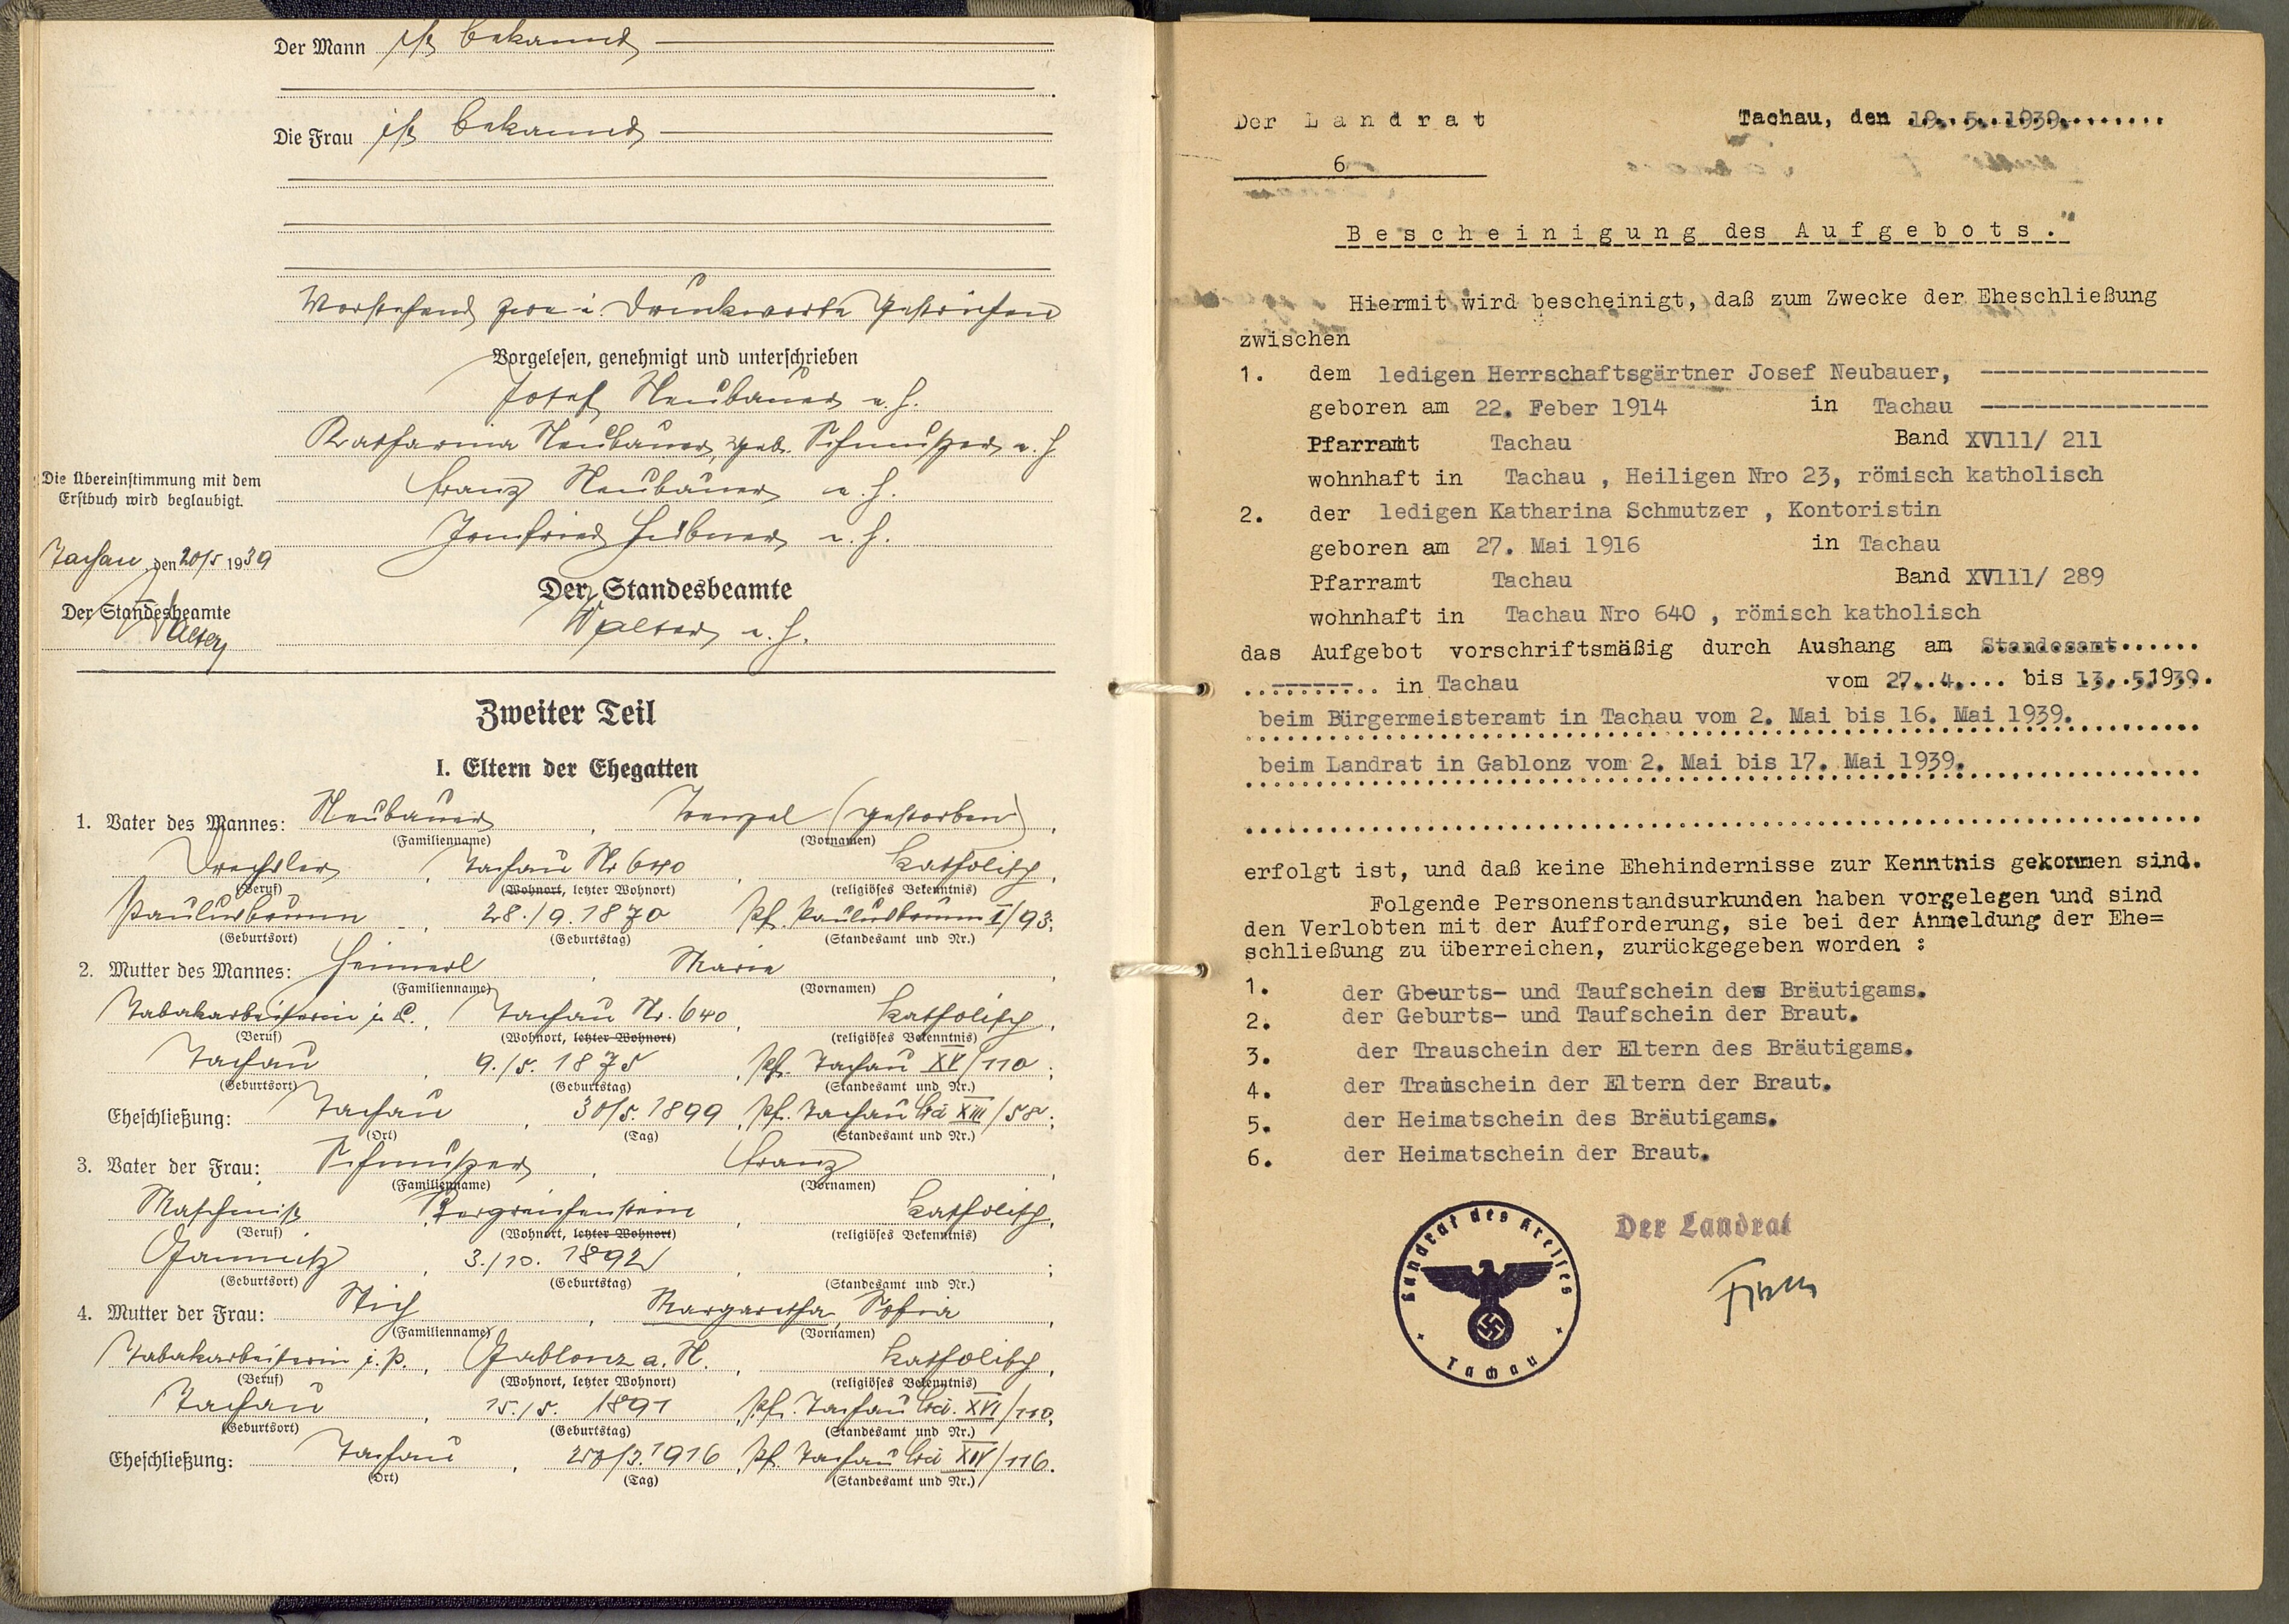 Der Mann ist bekannt
Die Frau ist bekannt
Vorstehend zwei Druckworte gestrichen
Vorgelesen, genehmigt und unterschrieben
Josef Neubauer e. h.
Katharina Neubauer, geb. Schmutzer e. h.
Franz Neubauer e. h.
Hübner e. h.
Die Übereinstimmung mit dem
Erstbuch wird beglaubigt.
Tachau, den 20/5 1939
Der Standesbeamte
Walter
Der Standesbeamte
Walter e. h.
Zweiter Teil
I. Eltern der Ehegatten
1. Vater des Mannes: Neubauer, Wenzel (gestorben),
(Familienname) (Vornamen)
Drechsler, Tachau Nr 640, katholisch,
(Beruf) (Wohnort, letzter Wohnort) (religiöses Bekenntnis)
Paulusbrunn, 28./9. 1870 Pf. Paulusbrunn I/93;
(Geburtsort) (Geburtstag) (Standesamt und Nr.)
2. Mutter des Mannes: Heimerl, Marie,
(Familienname) (Vornamen)
Tabakarbeiterin i. P., Tachau Nr. 640, katholisch,
(Beruf) (Wohnort, letzter Wohnort) (religiöses Bekenntnis)
Tachau, 9./5. 1875, Pf. Tachau XV/110;
(Geburtsort) (Geburtstag) (Standesamt und Nr.)
Eheschließung: Tachau, 30/5. 1899, Pf. Tachau XIII/58;
(Ort) (Tag) (Standesamt und Nr.)
3. Vater der Frau: Schmutzer, Franz,
(Familienname) (Vornamen)
Maschinist, katholisch,
(Beruf) (Wohnort, letzter Wohnort) (religiöses Bekenntnis)
3./10. 1892, ;
(Geburtsort) (Geburtstag) (Standesamt und Nr.)
4. Mutter der Frau: Stich, Margaretha, Sofia,
(Familienname) (Vornamen)
Tabakarbeiterin i. P., Gablonz a. N., katholisch,
(Beruf) (Wohnort, letzter Wohnort) (religiöses Bekenntnis)
Tachau, 15./5. 1891, Pf. Tachau XVI/110,
(Geburtsort) (Geburtstag) (Standesamt und Nr.)
Eheschließung: Tachau, 1916, Pf. Tachau XIV/116.
(Ort) (Tag) (Standesamt und Nr.)
Der Landrat Tachau, den 19. 5. 1939.
6
Bescheinigung des Aufgebots."
Hiermit wird bescheinigt, daß zum Zwecke der Eheschließung
zwischen
1. dem ledigen Herrschaftsgärtner Josef Neubauer,
geboren am 22. Feber 1914 in Tachau
Pfarramt Tachau Band XVlll/ 211
wohnhaft in Tachau , Heiligen Nro 23, römisch katholisch
2. der ledigen Katharina Schmutzer , Kontoristin
geboren am 27. Mai 1916 in Tachau
Pfarramt Tachau Band XVlll/ 289
wohnhaft in Tachau Nro 640 , römisch katholisch
das Aufgebot vorschriftsmäßig durch Aushang am Standesamt......
.......... in Tachau vom 27..4.... bis 13..5.1939.
beim Bürgermeisteramt in Tachau vom 2. Mai bis 16. Mai 1939.
beim Landrat in Gablonz vom 2. Mai bis 17. Mai 1939.
erfolgt ist, und daß keine Ehehindernisse zur Kenntnis gekommen sind.
Folgende Personenstandsurkunden haben vorgelegen und sind
den Verlobten mit der Aufforderung, sie bei der Anmeldung der Ehe=
schließung zu überreichen, zurückgegeben worden :
1. der Gbeurts- und Taufschein des Bräutigams.
2. der Geburts- und Taufschein der Braut.
3. der Trauschein der Eltern des Bräutigams.
4. der Trauschein der Eltern der Braut.
5. der Heimatschein des Bräutigams.
6. der Heimatschein der Braut.
Landrat des Kreises
Tachau
Der Landrat